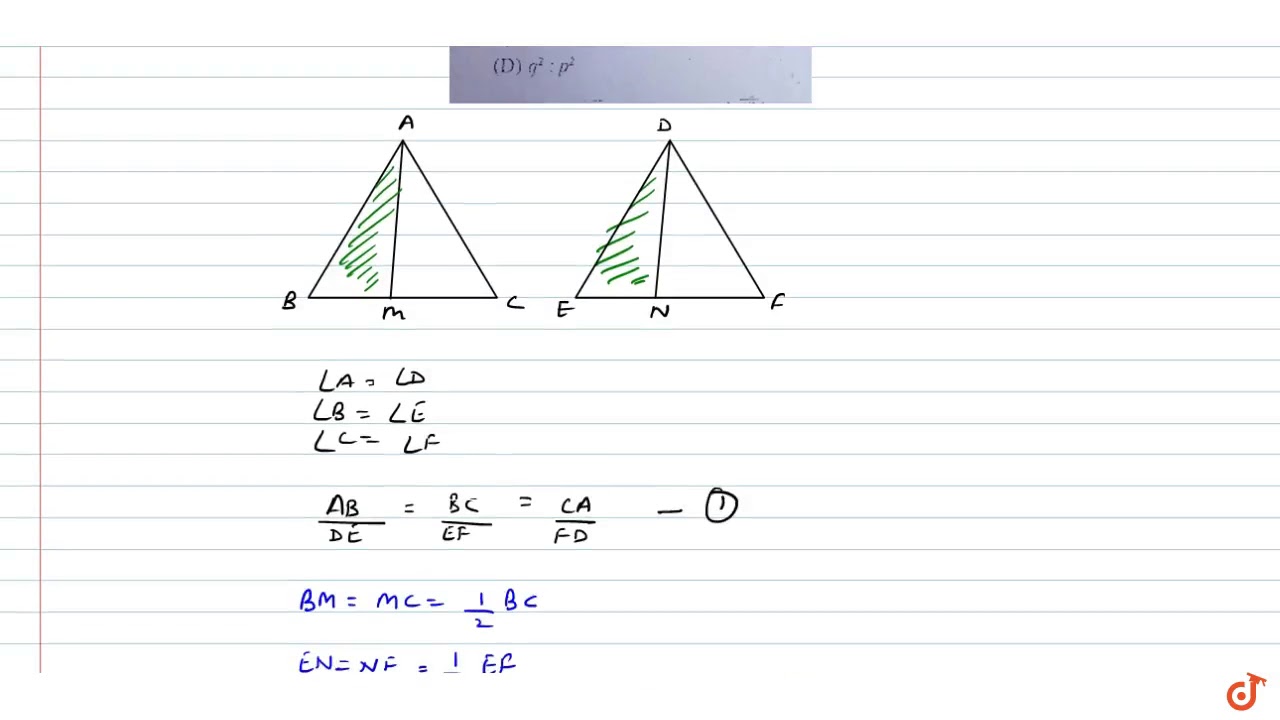 (D) q² : p²
A D
B M C E N F
∠A = ∠D
∠B = ∠E
∠C = ∠F
AB/DE = BC/EF = CA/FD — ①
BM = MC = 1/2 BC
EN = NF = 1/ EF